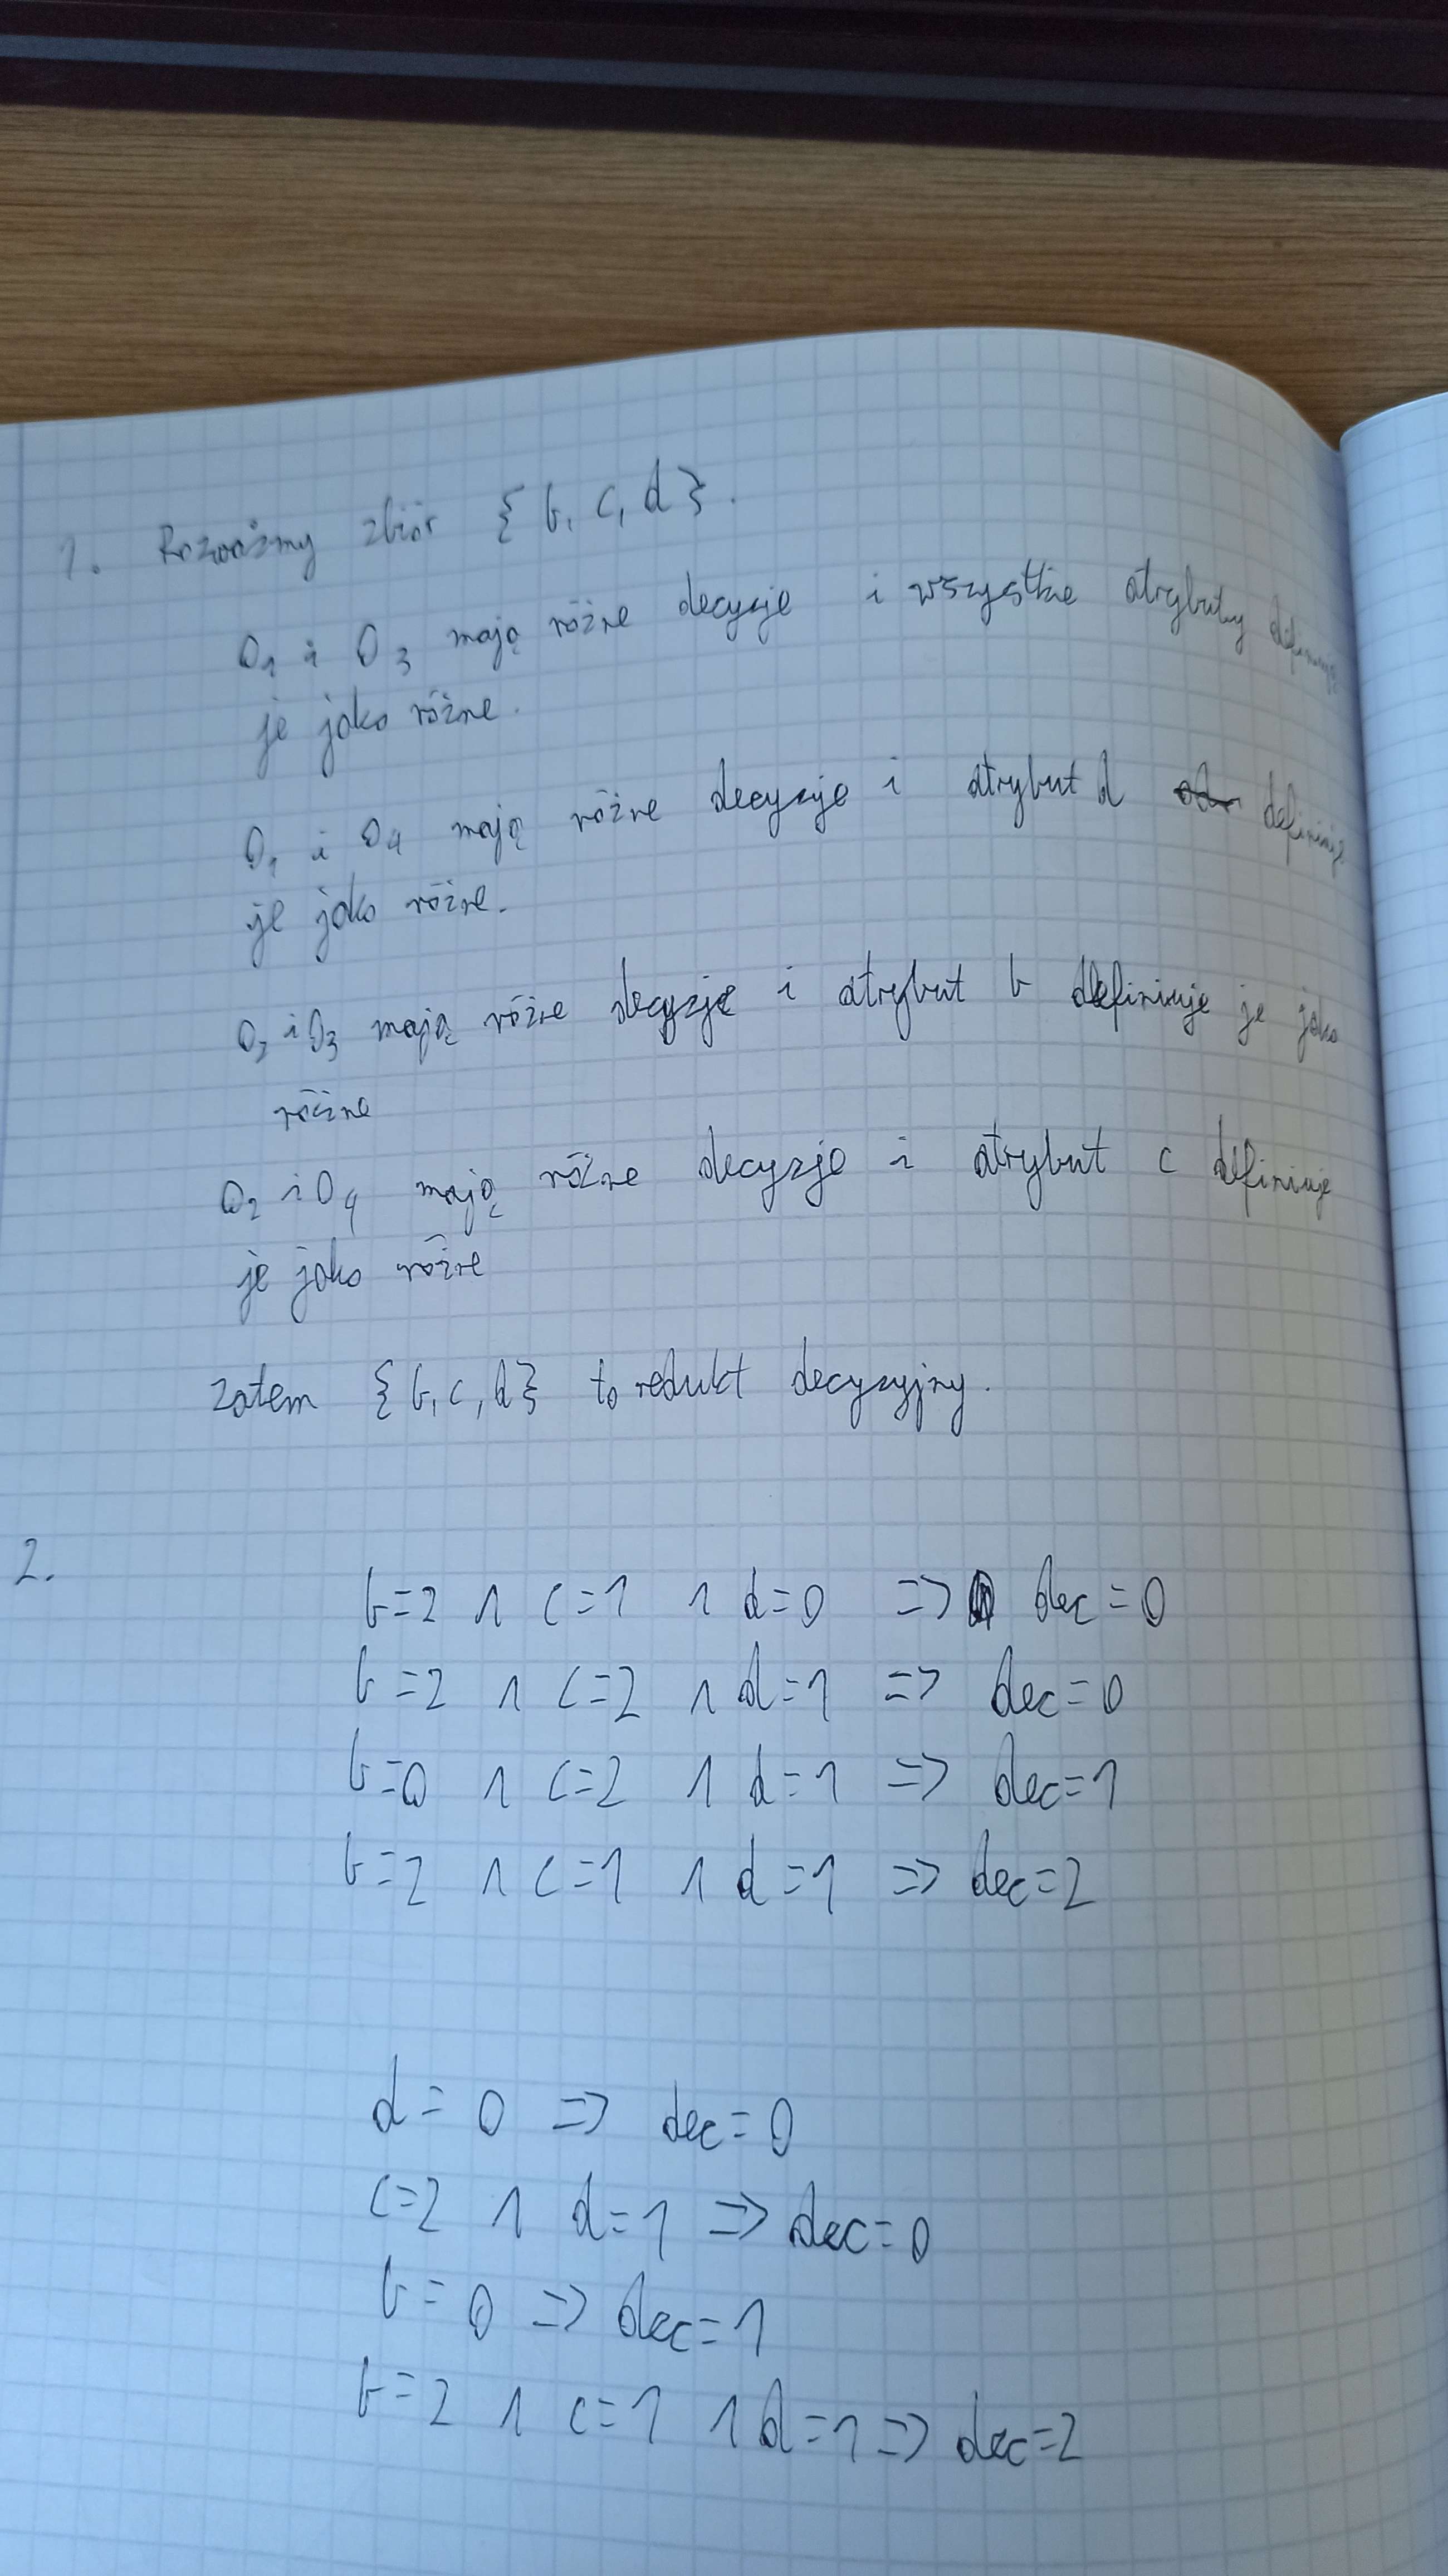 1. Rozważmy zbiór {b, c, d}.
O1 i O3 mają różne decyzje i wszystkie atrybuty definiują
je jako różne.
O1 i O4 mają różne decyzje i atrybut d definiuje
je jako różne.
O2 i O3 mają różne decyzje i atrybut b definiuje je jako
różne
O2 i O4 mają różne decyzje i atrybut c definiuje
je jako różne
Zatem {b, c, d} to redukt decyzyjny.
2.
b=2 ∧ c=1 ∧ d=0 => dec=0
b=2 ∧ c=2 ∧ d=1 => dec=0
b=0 ∧ c=2 ∧ d=1 => dec=1
b=2 ∧ c=1 ∧ d=1 => dec=2
d=0 => dec=0
c=2 ∧ d=1 => dec=0
b=0 => dec=1
b=2 ∧ c=1 ∧ d=1 => dec=2